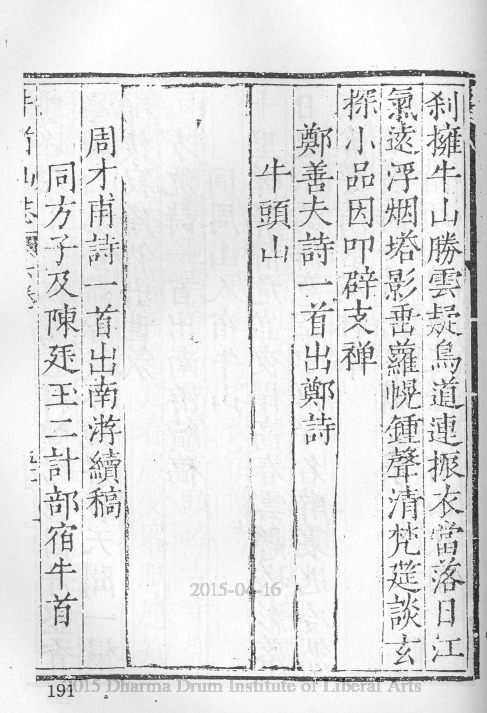 刹擁牛山勝雲疑鳥道連振衣當落日江
氣遠浮烟塔影垂蘿幌鍾聲清梵莚談玄
探小品因叩辟支禅
鄭善夫詩一首出鄭詩
牛頭山
周才甫詩一首出南游續稿
同方子及陳廷王二計部宿牛首
牛首山志
2015-04-16
191
2015 Dharma Drum Institute of Liberal Arts